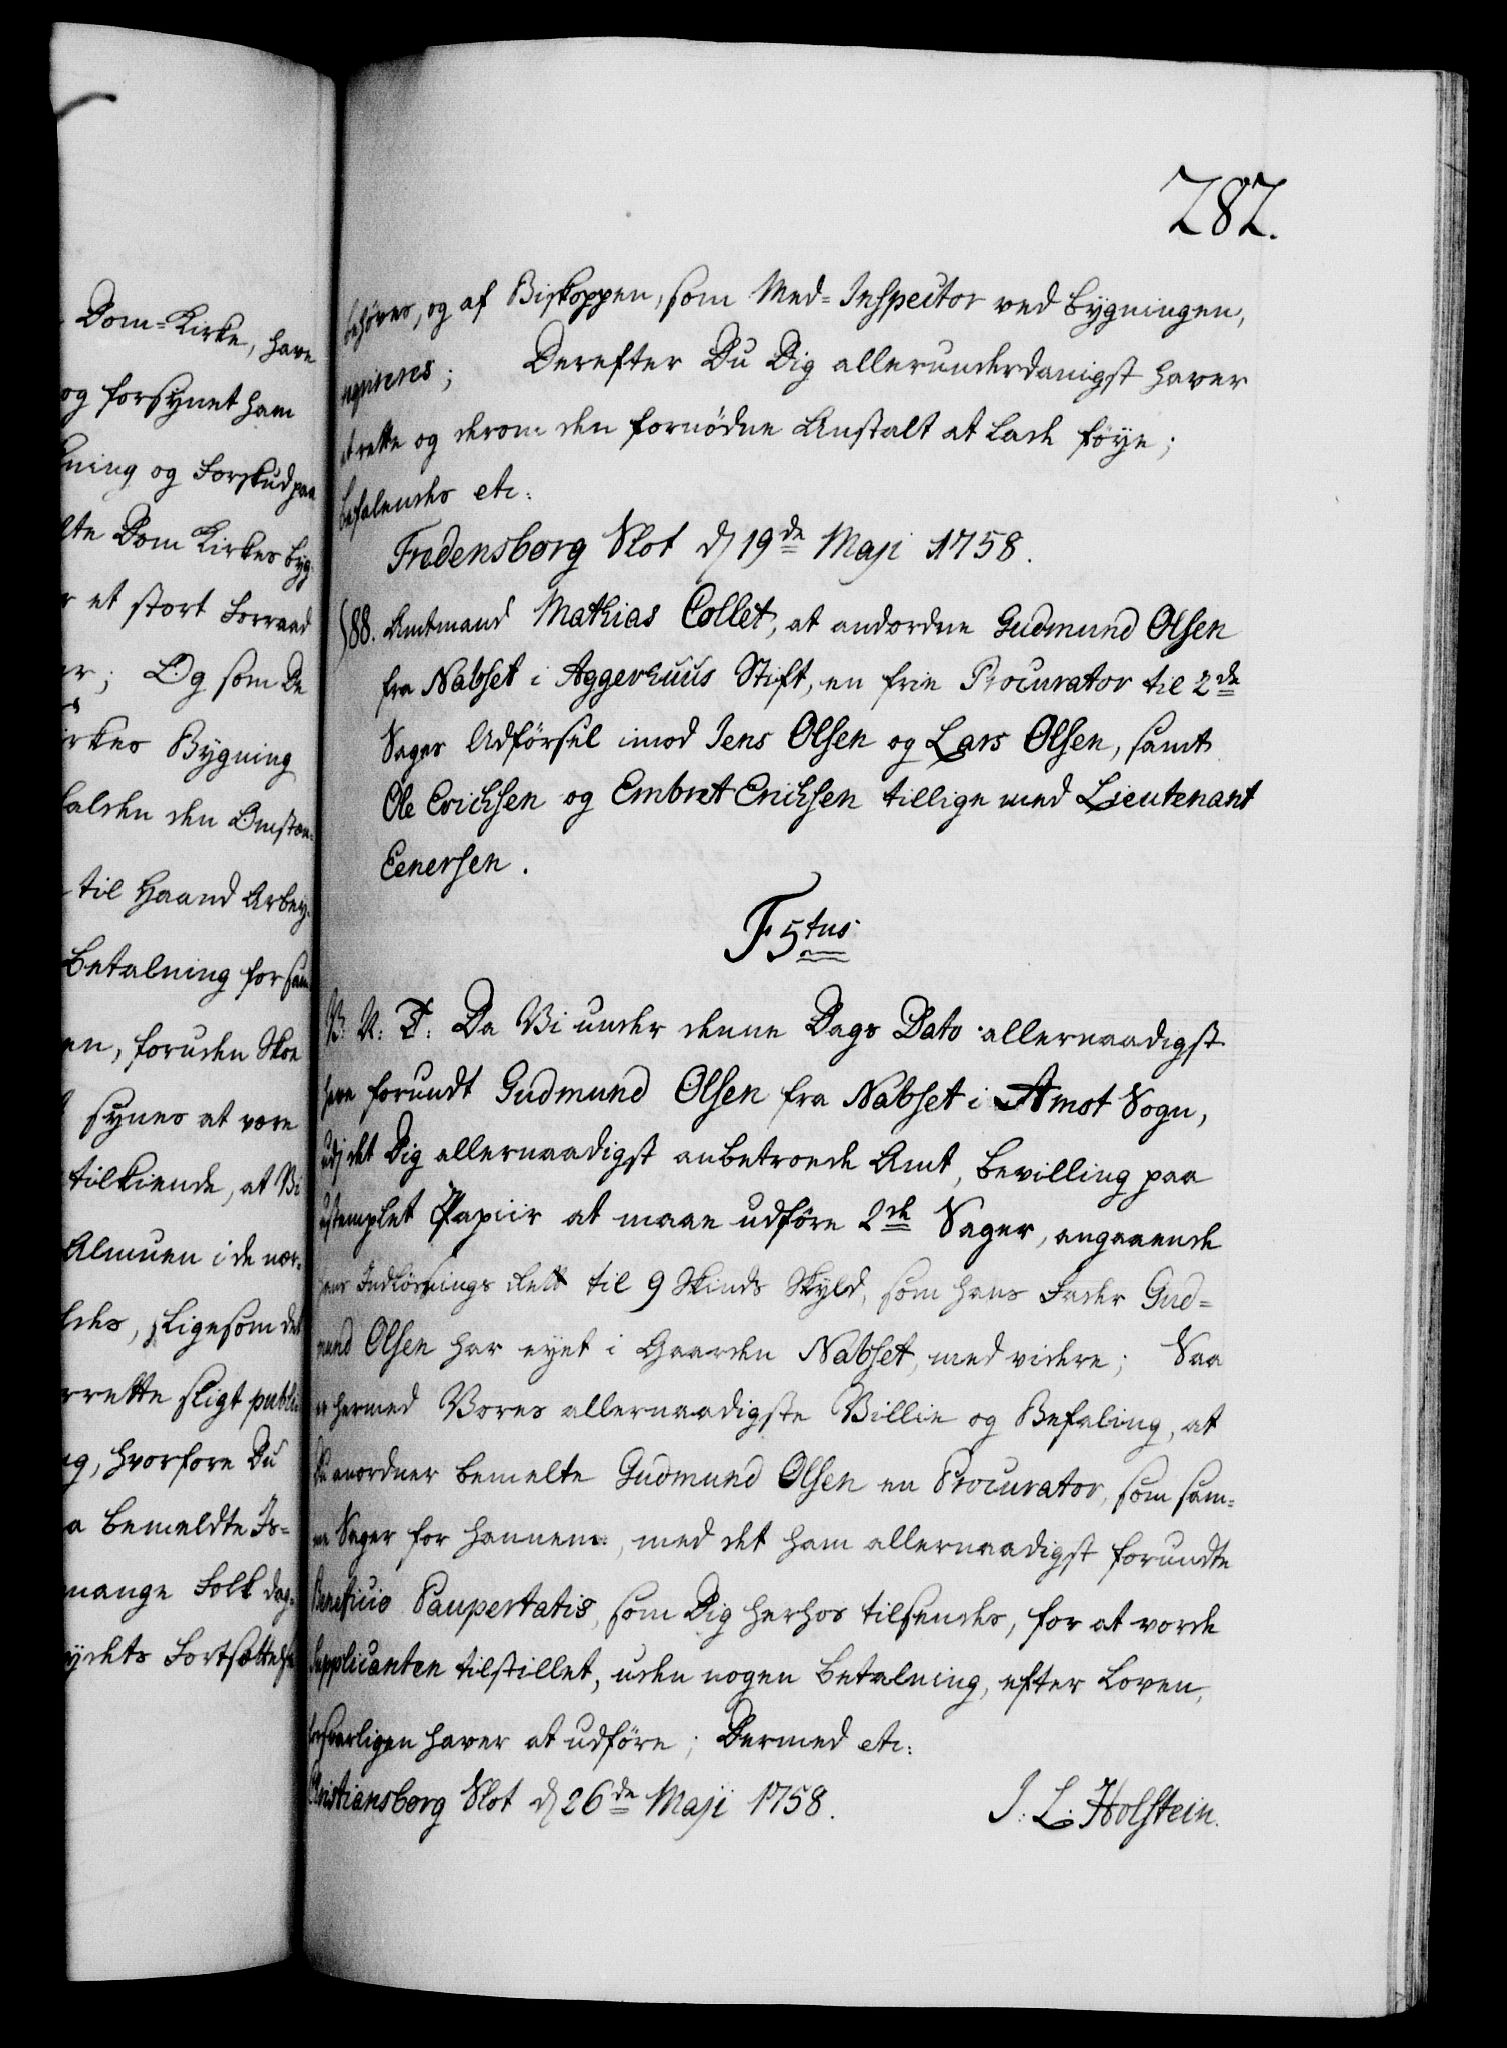 Dom-Kirke, have
og forsynet ham
og Forskud paa
Dom Kirkes Byg
et stort Forraad
Og som De
Bygning
den Omstæn-
til Haand Arbey-
Betalning for
foruden
synes at være
tilkiende, at Vi
Almuen i de nær-
ligesom det
sligt publi
hvorfore Du
bemeldte
mange Folk dag-
Fortsættelse
282.
behøves, og af Biskoppen, som Med-Inspector ved Bygningen,
reqvireres; Derefter Du Dig allerunderdanigst haver
at rette og derom den fornødne Anstalt at lade føye;
Befalendes etc:
Fredensborg Slot d 19de Maji 1758.
588. Amtmand Mathias Collet, at andordne Gudmund Olsen
fra Nabset i Aggerhuus Stift, en frie Procurator til 2de
Sagers Udførsel imod Jens Olsen og Lars Olsen, samt
Ole Erichsen og Embret Erichsen tillige med Lieutenant
Eenersen.
F 5tus
V. A: T: Da Vi under denne Dags Dato allernaadigst
have forundt Gudmund Olsen fra Nabset i Amot Sogn,
udj det Dig allernaadigst anbetroede Amt, Bevilling paa
ustemplet Papiir at maae udføre 2de Sager, angaaende
hans Indløsnings Rett til 9 Skinds Skyld, som hans Fader Gud-
mund Olsen har eyet i Gaarden Nabset, med videre; Saa
er hermed Vores allernaadigste Villie og Befaling, at
Du anordner bemelte Gudmund Olsen en Procurator, som sam-
me Sager for hannem, med det ham allernaadigst forundte
Beneficio Paupertatis, som Dig herhos tilsendes, for at vorde
Supplicanten tilstillet, uden nogen Betalning, efter Loven,
forsvarligen haver at udføre; Dermed etc:
Christiansborg Slot d 26de Maji 1758.
J: L: Holstein.